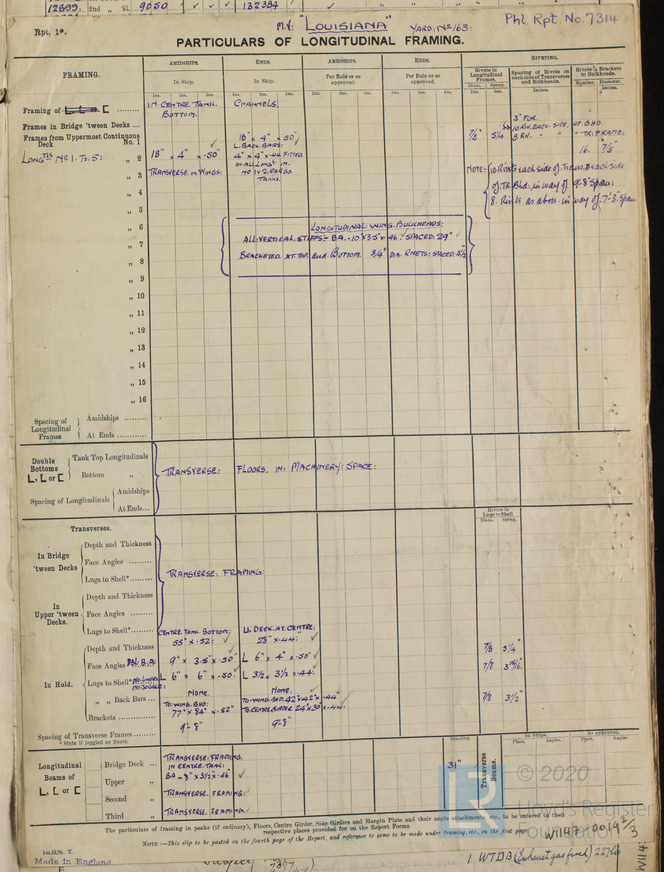 12695. 2nd „ 9L 9050 ✓ ✓ ✓ 132384
Rpt, 1*.
M.V. "LOUISIANA" YARD: Nº 163:
Phl. Rpt. No. 7314
PARTICULARS OF LONGITUDINAL FRAMING.
FRAMING.
AMIDSHIPS. ENDS. AMIDSHIPS. ENDS. RIVETING.
In Ship. In Ship. Per Rule or as approved. Per Rule or as approved.
Rivets in Longitudinal Frames. Spacing of Rivets on each side of Transverses and Bulkheads. Rivets in Brackets to Bulkheads.
Ins. Ins. Ins. Ins. Ins. Ins. Ins. Ins. Ins. Ins. Ins. Ins. Diam. Spcng. Inches. Number. Diameter.
Framing of L, L or [ ..........
IN CENTRE TANK BOTTOM. CHANNELS:
Frames in Bridge 'tween Decks ...
Frames from Uppermost Continuous Deck No. 1
18" × 4" × ·50" 7/8" 5 1/4
3" FOR
10 RIV. EACH. SIDE. OF BHD.
8 RIV. " " " TR: FRAME:
LONGTLS Nº 1. TO. 5: „ 2
18" × 4" × ·50"
L. BACK. BARS:
4" × 4" × ·44 FITTED
16. 7/8"
„ 3
TRANSVERSE IN WINGS:
NO 1 & 2 CARGO TANKS.
NOTE: 10 Rivets each side of Transv. & each side
of Tr. Bhd. in way of 9'-8" Span:
8. Rivts as above. in way of 7'-3" Span
„ 4
„ 5
„ 6
LONGITUDINAL: WING. BULKHEADS:
„ 7
ALL. VERTICAL. STIFFS:- BA - 10" × 3·5" × ·46. SPACED. 29"
„ 8
BRACKETED. AT. TOP. and BOTTOM. 3/4" DIA. RIVETS: SPACED. 4 1/2
„ 9
„ 10
„ 11
„ 12
„ 13
„ 14
„ 15
„ 16
Spacing of Longitudinal Frames { Amidships .........
At Ends ............
Double Bottoms L, L or [
Tank Top Longitudinals
Bottom „
TRANSVERSE: FLOORS. IN. MACHINERY: SPACE:
Spacing of Longitudinals { Amidships
At Ends...
Transverses.
Rivets in Lugs to Shell
Diam. Spcng.
In Bridge 'tween Decks
Depth and Thickness
Face Angles ............
Lugs to Shell*.........
TRANSVERSE: FRAMING:
In Upper 'tween Decks.
Depth and Thickness
Face Angles ............
Lugs to Shell*.........
CENTRE. TANK. BOTTOM: U. DECK. AT. CENTRE:
In Hold.
Depth and Thickness 55" × ·52: 28" × ·44: 7/8 5 1/4"
Face Angles B.A: 9" × 3·5" × ·50" L 6" × 4" × ·50" 7/8 3 15/16"
Lugs to Shell* L 6" × 6" × ·50" L 3 1/2 × 3 1/2 × ·44:
„ „ Back Bars ... NONE. NONE. 7/8 3 1/2"
Brackets .........
TO WING. BHD: 77" × 84" × ·52"
TO WING. BHD. 42" × 42" × ·44"
TO CENTRE GIRDER 24" × 30" × ·44.
Spacing of Transverse Frames 9'-8" 9'-8"
* State if joggled or liners.
Spacing. In Ships. As approved.
Plate. Angles. Plate. Angles.
Longitudinal Beams of L, L or [
Bridge Deck ...
TRANSVERSE: FRAMING.
IN CENTRE. TANK:
31"
Transverse Beams.
Upper „ BA - 8" × 3 1/2 × ·46"
Second „ TRANSVERSE. FRAMING:
Third „ TRANSVERSE. FRAMING:
The particulars of framing in peaks (if ordinary), Floors, Centre Girder, Side Girders and Margin Plate and their angle attachments, etc., to be entered in their
respective places provided for on the Report Forms.
NOTE :—This slip to be pasted on the fourth page of the Report, and reference to some to be made under framing, etc., on the first page
© 2020
Lloyd's Register
Foundation
W1147-0019 2/3
Made in England
1. WTDB (Exhaust gas fired)
W114